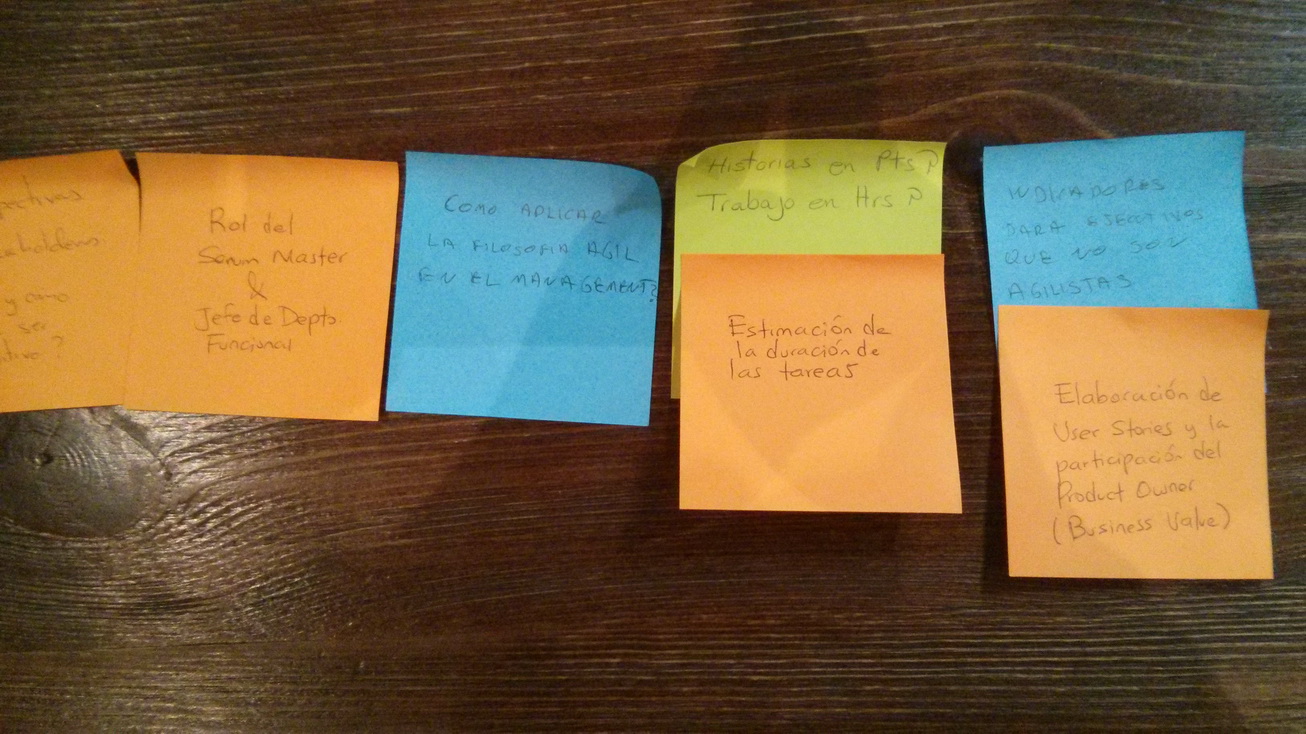 y como
ser
Rol del
Scrum Master
&
Jefe de Depto.
Funcional
COMO APLICAR
LA FILOSOFIA AGIL
EN EL MANAGEMENT?
Historias en Pts?
Trabajo en Hrs?
Estimación de
la duración de
las tareas
INDICADORES
PARA EJECUTIVOS
QUE NO SON
AGILISTAS
Elaboración de
User Stories y la
participación del
Product Owner
(Business Value)